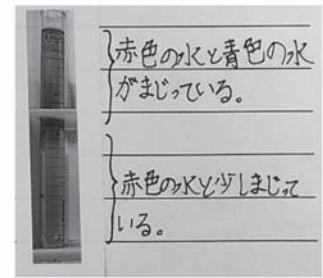 赤色の水と青色の水
がまじっている。
赤色の水と少しまじって
いる。